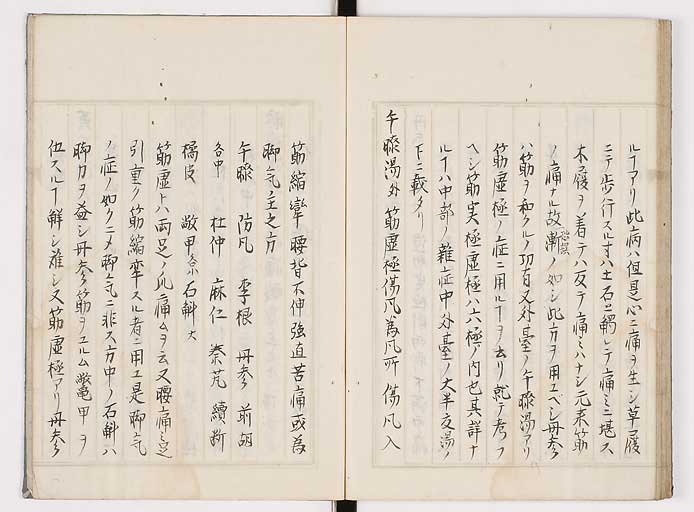 ルヿアリ此病ハ但是心ニ痛ヲ生シ草履
ニテ歩行スルオハ土石ニ觸レテ痛ミニ堪ス
木履ヲ着テハ反テ痛ミハナシ元来筋
ノ痛ナル故漸ノ如シ此方ヲ用エベシ丹参
ハ筋ヲ和クルノ功有又外臺ノ午膝湯アリ
筋虚極ノ症ニ用ルヿヲ去リ就テ考フ
ヘシ筋実極虚極ハ六極ノ内也其詳ナ
ルヿハ中部ノ雜症中外臺ノ大半夏湯ノ
下ニ載タリ
午膝湯外筋虚極傷風為風所傷風入
筋縮攣腰背不伸強直苦痛或為
脚氣主之方
午膝 防風 李根 丹参 前胡
各中 杜仲 麻仁 秦艽 續断
橘皮 鼈甲 石斛大
筋虚トハ両足ノ爪痛ムヲ云又腰痛ミ足
引重ク筋縮牽スル者ニ用エ是脚氣
ノ症ノ如クニメ脚氣ニ非ス方中ノ石斛ハ
脚力ヲ益シ丹参筋ヲユルム鼈甲ヲ
伍スルヿ解シ難シ又筋虚極アリ丹参